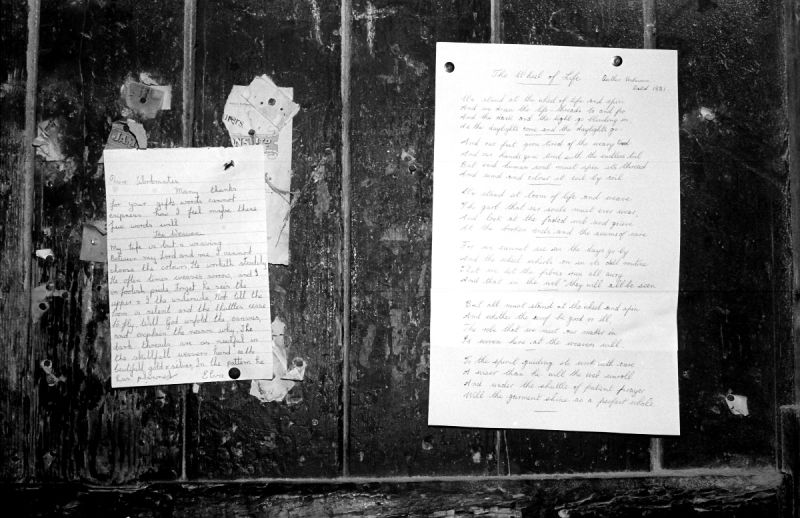 Dear Workmates
Many thanks
for your gift, words cannot
express how I feel maybe these
few words will
The Weaver
My life is but a weaving
Between my Lord and me, I cannot
choose the colours He worketh steadily
He often times weaves sorrow, and I
in foolish pride. Forget he sees the
upper & I the underside. Not till the
loom is silent and the shuttles cease
to fly, Will God unfold the canvas,
and explain the reason why. The
dark threads are as needful in
the skillfull weavers hand as the
threads of gold & silver, In the pattern he
has planned
URERS
The Wheel of Life
Author Unknown
Dated 1931
We stand at the wheel of life and spin
And we draw the life threads to and fro
And the dark and the light go blending in
As the daylights come and the daylights go
And our feet grow tired of the weary tread
And our hands grow tired with the endless toil
But each human soul must spin its thread
And wind and colour it coil by coil
We stand at loom of life and weave
The garb that our souls must ever wear,
And look at the faded web and grieve
At the broken ends and the seams of care
For we cannot see as the days go by
And the wheel whirls on in its dull routine
That we let the fibres run all awry
And that in the web they will all be seen
But all must stand at the wheel and spin
And whether the warp be good or ill,
The robe that we meet our maker in
Is woven here at the weavers will.
To the spool guiding its work with care
A weaver than he will the web unroll
And under the shuttle of patient prayer
Will the garment shine as a perfect whole.